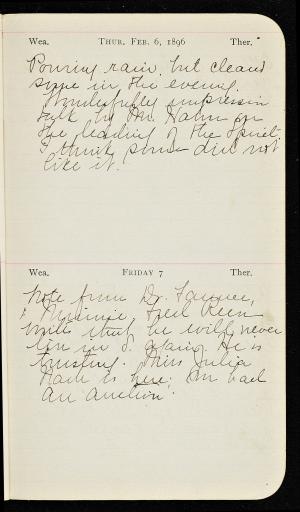 Wea. THUR. FEB. 6, 1896 Ther.
Pouring rain, but cleared
some in the evening.
Wonderfully impressive
talk by Mr. Hahn on
the leading of the Spirit.
I think some did not
like it.
Wea. FRIDAY 7 Ther.
Note from Dr.
& Minnie Fred
that he will never
in again. He is
trusting. Miss Julia
is here;
an auction.